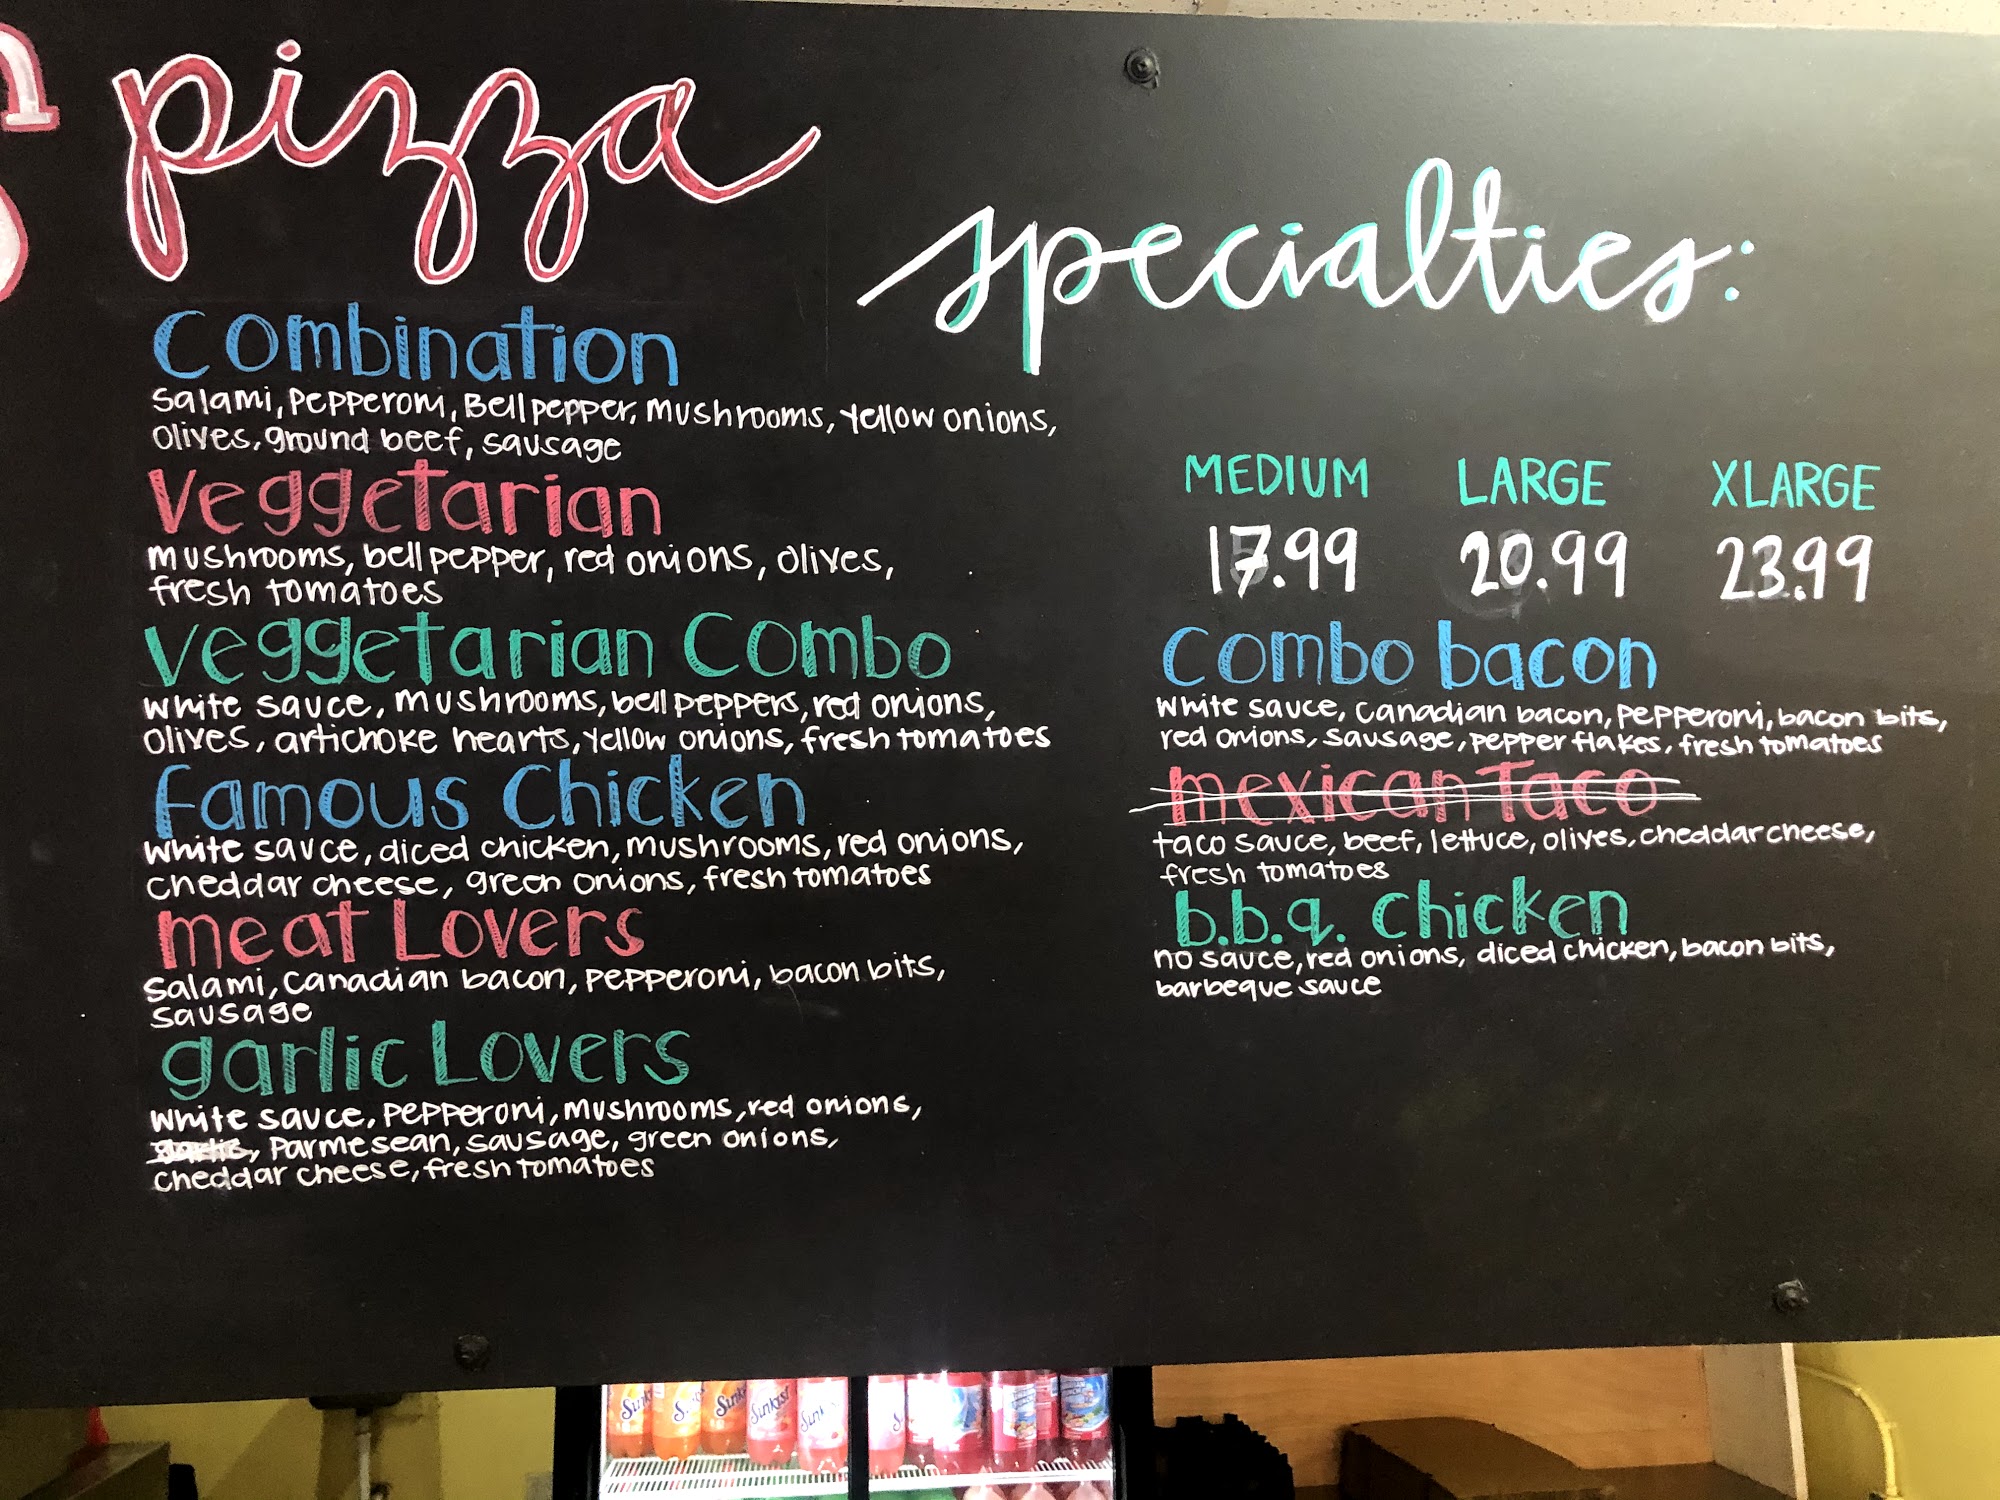 pizza
specialties:
Combination
Salami, Pepperoni, Bell pepper, mushrooms, yellow onions,
Olives, ground beef, sausage
Veggetarian
mushrooms, bell pepper, red onions, olives,
fresh tomatoes
Veggetarian Combo
White sauce, mushrooms, bell peppers, red onions,
Olives, artichoke hearts, yellow onions, fresh tomatoes
Famous Chicken
White sauce, diced chicken, mushrooms, red onions,
Cheddar cheese, green onions, fresh tomatoes
meat Lovers
Salami, Canadian bacon, pepperoni, bacon bits,
Sausage
garlic Lovers
White sauce, pepperoni, mushrooms, red onions,
garlic, Parmesean, sausage, green onions,
Cheddar cheese, fresh tomatoes
MEDIUM LARGE XLARGE
17.99 20.99 23.99
Combo bacon
White sauce, Canadian bacon, pepperoni, bacon bits,
red onions, sausage, pepper flakes, fresh tomatoes
mexican Taco
taco sauce, beef, lettuce, olives, cheddar cheese,
fresh tomatoes
b.b.q. Chicken
no sauce, red onions, diced chicken, bacon bits,
barbeque sauce
Sunkist